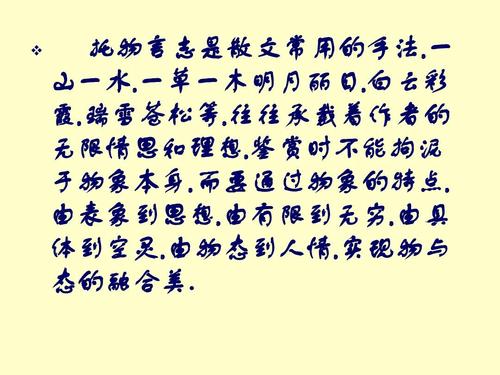 托物言志是散文常用的手法.一
山一水.一草一木明月丽日.白云彩
霞.瑞雪苍松等.往往承载着作者的
无限情思和理想.鉴赏时不能拘泥
于物象本身.而要通过物象的特点.
由表象到思想.由有限到无穷.由具
体到空灵.由物态到人情.实现物与
态的融合美.